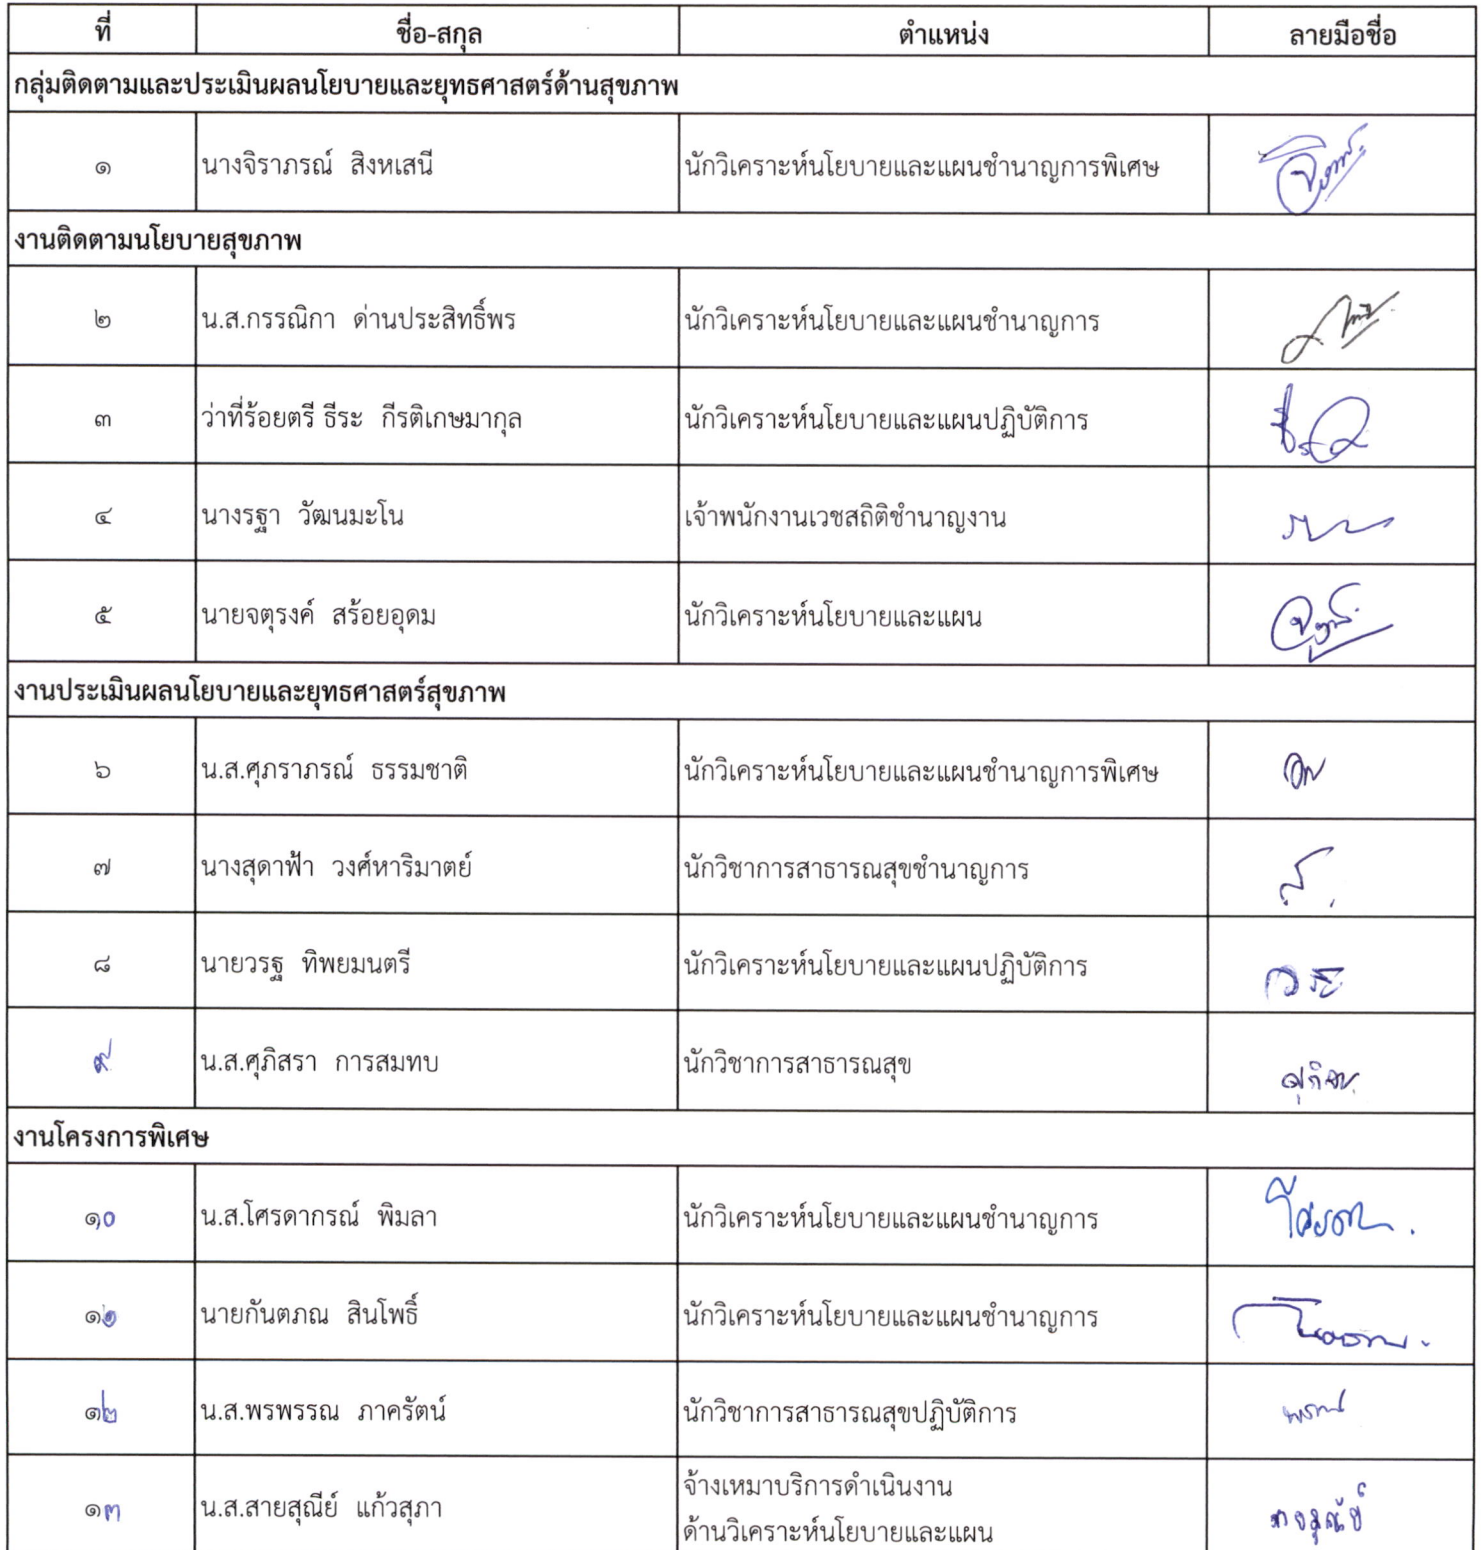 ที่ ชื่อ-สกุล ตำแหน่ง ลายมือชื่อ
กลุ่มติดตามและประเมินผลนโยบายและยุทธศาสตร์ด้านสุขภาพ
๑ นางจิราภรณ์ สิงหเสนี นักวิเคราะห์นโยบายและแผนชำนาญการพิเศษ
งานติดตามนโยบายสุขภาพ
๒ น.ส.กรรณิกา ด่านประสิทธิ์พร นักวิเคราะห์นโยบายและแผนชำนาญการ
๓ ว่าที่ร้อยตรี ธีระ กีรติเกษมากุล นักวิเคราะห์นโยบายและแผนปฏิบัติการ
๔ นางรฐา วัฒนมะโน เจ้าพนักงานเวชสถิติชำนาญงาน
๕ นายจตุรงค์ สร้อยอุดม นักวิเคราะห์นโยบายและแผน
งานประเมินผลนโยบายและยุทธศาสตร์สุขภาพ
๖ น.ส.ศุภราภรณ์ ธรรมชาติ นักวิเคราะห์นโยบายและแผนชำนาญการพิเศษ
๗ นางสุดาฟ้า วงศ์หาริมาตย์ นักวิชาการสาธารณสุขชำนาญการ
๘ นายวรฐ ทิพยมนตรี นักวิเคราะห์นโยบายและแผนปฏิบัติการ
๙ น.ส.ศุภิสรา การสมทบ นักวิชาการสาธารณสุข
งานโครงการพิเศษ
๑๐ น.ส.โศรดากรณ์ พิมลา นักวิเคราะห์นโยบายและแผนชำนาญการ
๑๑ นายกันตภณ สินโพธิ์ นักวิเคราะห์นโยบายและแผนชำนาญการ
๑๒ น.ส.พรพรรณ ภาครัตน์ นักวิชาการสาธารณสุขปฏิบัติการ
๑๓ น.ส.สายสุณีย์ แก้วสุภา จ้างเหมาบริการดำเนินงาน
ด้านวิเคราะห์นโยบายและแผน